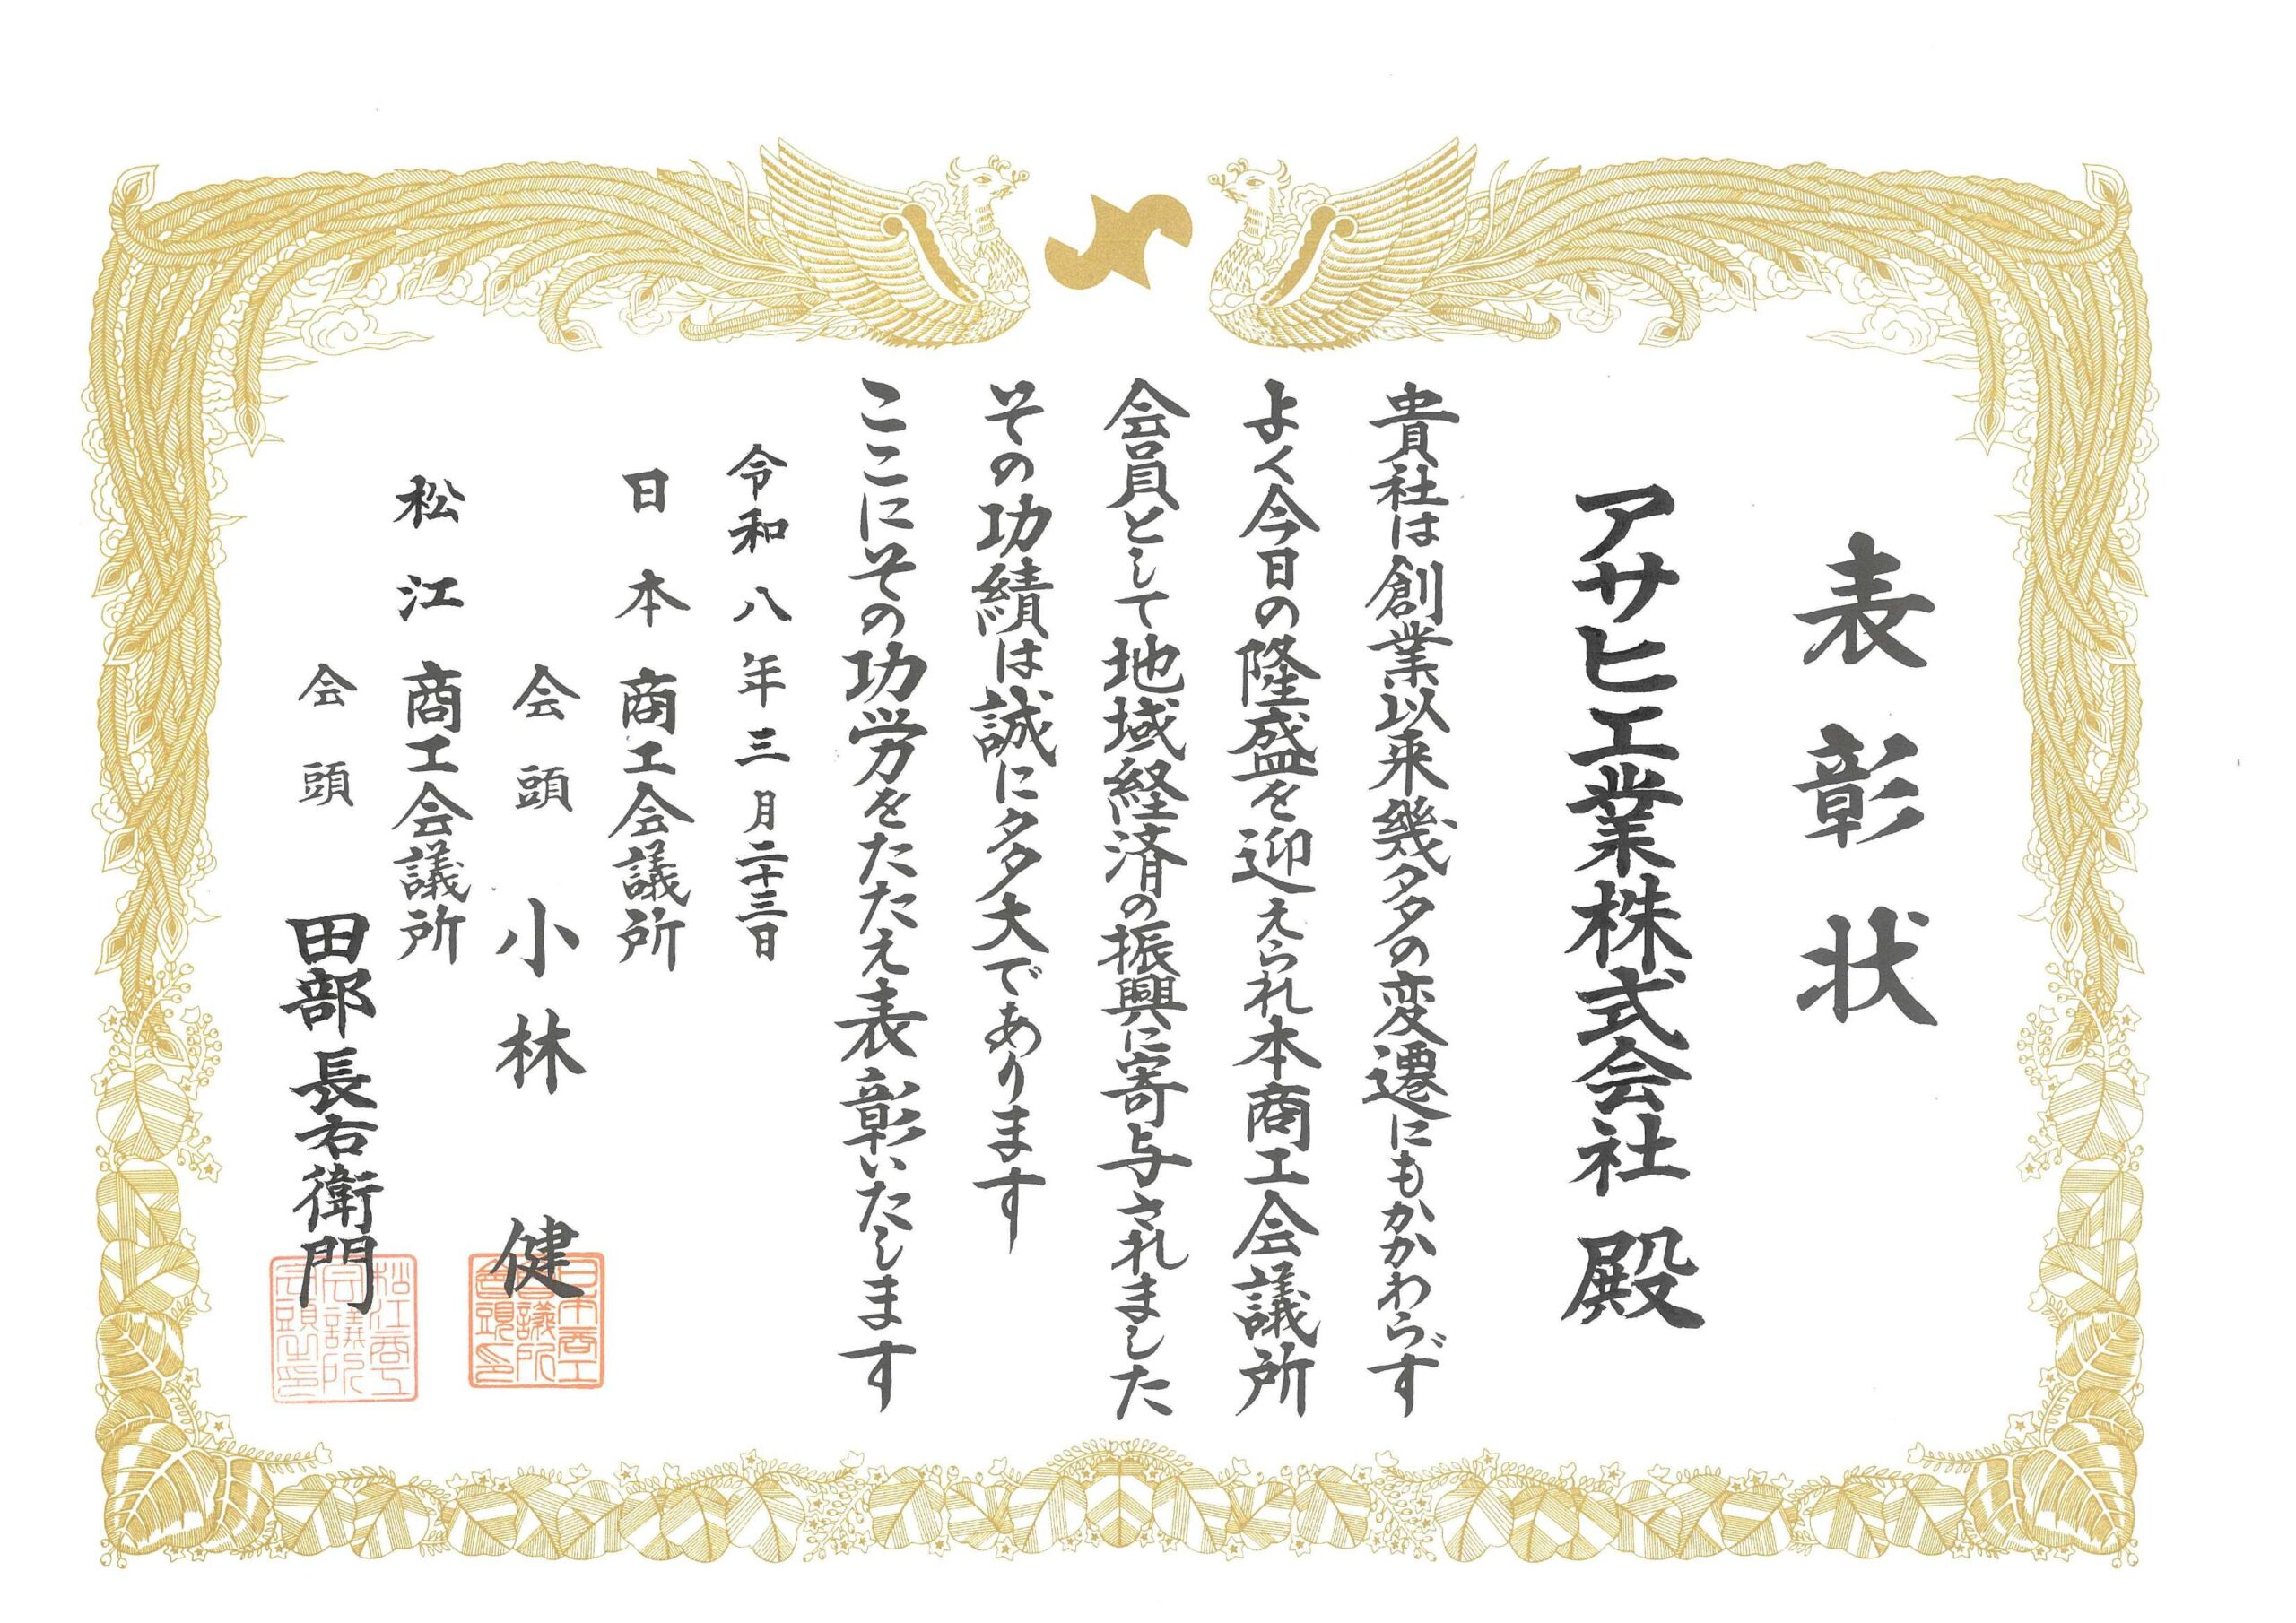 表彰状
アサヒ工業株式会社 殿
貴社は創業以来幾多の変遷にもかかわらず
よく今日の隆盛を迎えられ本商工会議所
会員として地域経済の振興に寄与されました
その功績は誠に多大であります
ここにその功労をたたえ表彰いたします
令和八年三月二十三日
日本商工会議所
会頭 小林 健
松江商工会議所
会頭 田部長右衛門
日本商工
会議所
會頭印
松江商工
会議所
会頭之印